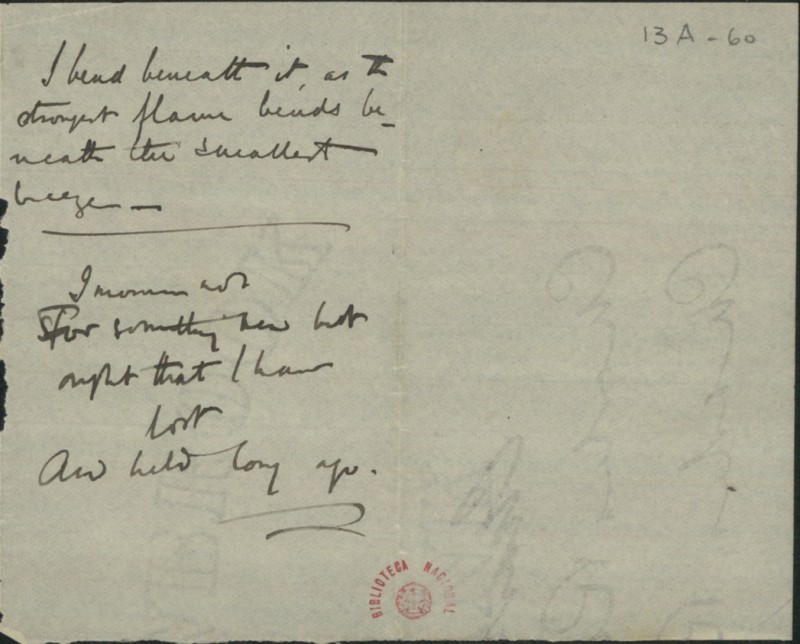 13A-60
I bend beneath it, as the
strongest flame bends be-
neath the smallest
breeze —
I mourn not
For something new lost
ought that I have
lost
And held long ago.
BIBLIOTECA NACIONAL